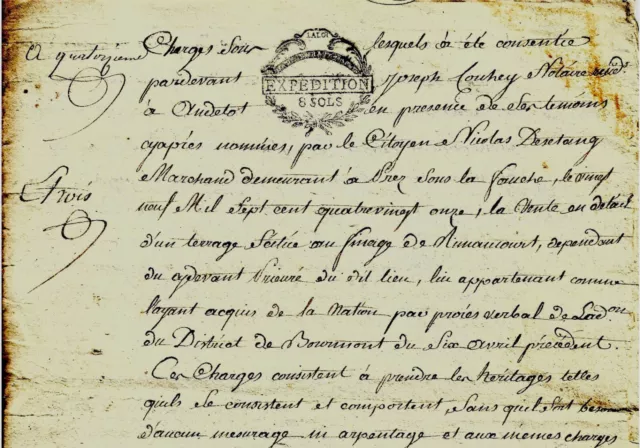 A quatorzieme
Trois
LA LOI
EXPEDITION
8 SOLS
Charges Sous lesquels a été consentie
pardevant Joseph Couhey Notaire
à Andelot en presence de Ses temoins
cyaprés nommées, par le Citoyen Nicolas Desetang
Marchand demeurant à Prez Sous la fauche, le vingt
neuf Mil Sept cent quatrevingt onze, la Vente en detail
d'un terrage Scitué au finage de Rimaucourt, dependant
du cydevant Prieuré du dit lieu, lui appartenant comme
layant acquis de la Nation par procès verbal de Lad.on
du District de Bourmont du Six avril précédent.
Ces Charges consistent à prendre les héritages telles
quils se consistent et comportent, Sans quil soit besoin
d'aucun mesurage ni arpentage et aux mêmes charges